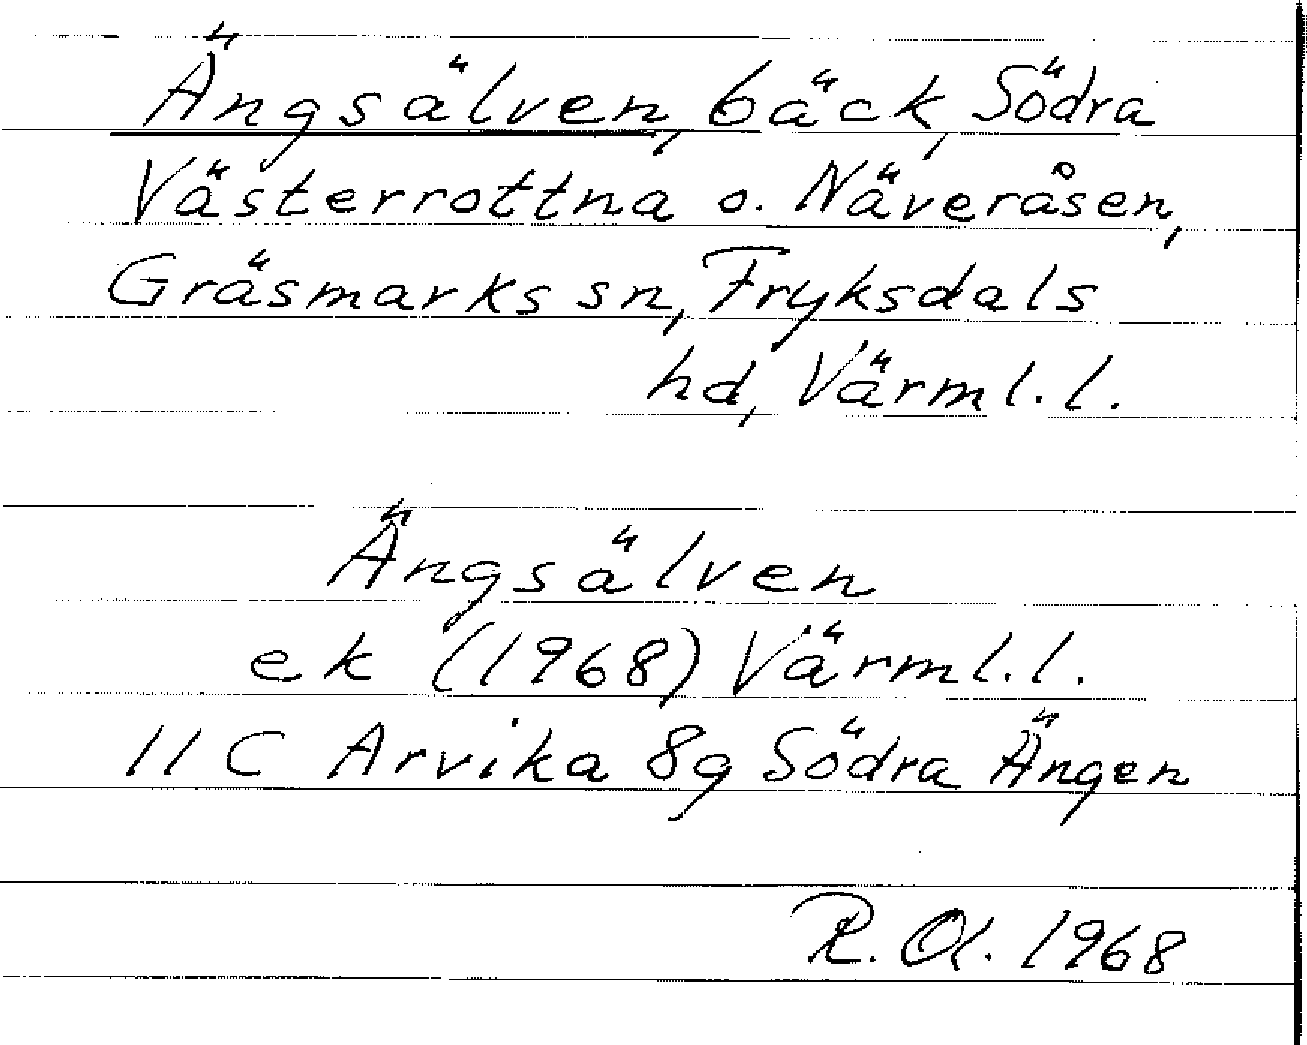 Ängsälven, bäck, Södra
Västerrottna o. Näveråsen,
Gräsmarks sn, Fryksdals
hd, Värml. l.
Ängsälven
ek (1968) Värml. l.
11 C Arvika 8g Södra Ängen
R. Ol. 1968